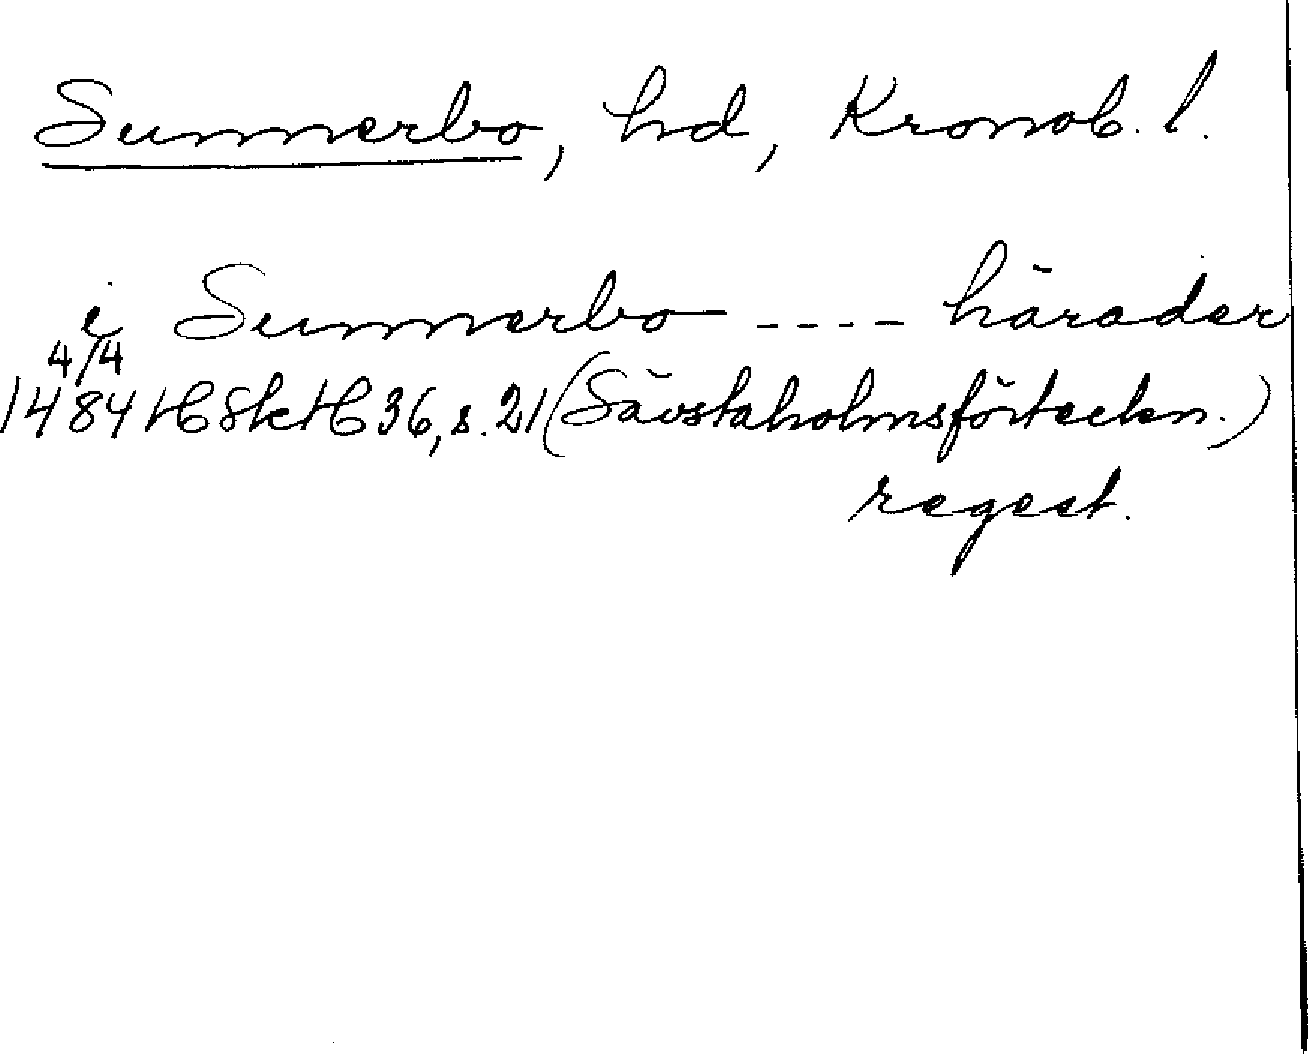 Sunnerbo, hd, Kronob. l.
i Sunnerbo ---- härader
4/4
1484 HSkH 36, s. 21 (Sävstaholmsförteckn.)
regest.